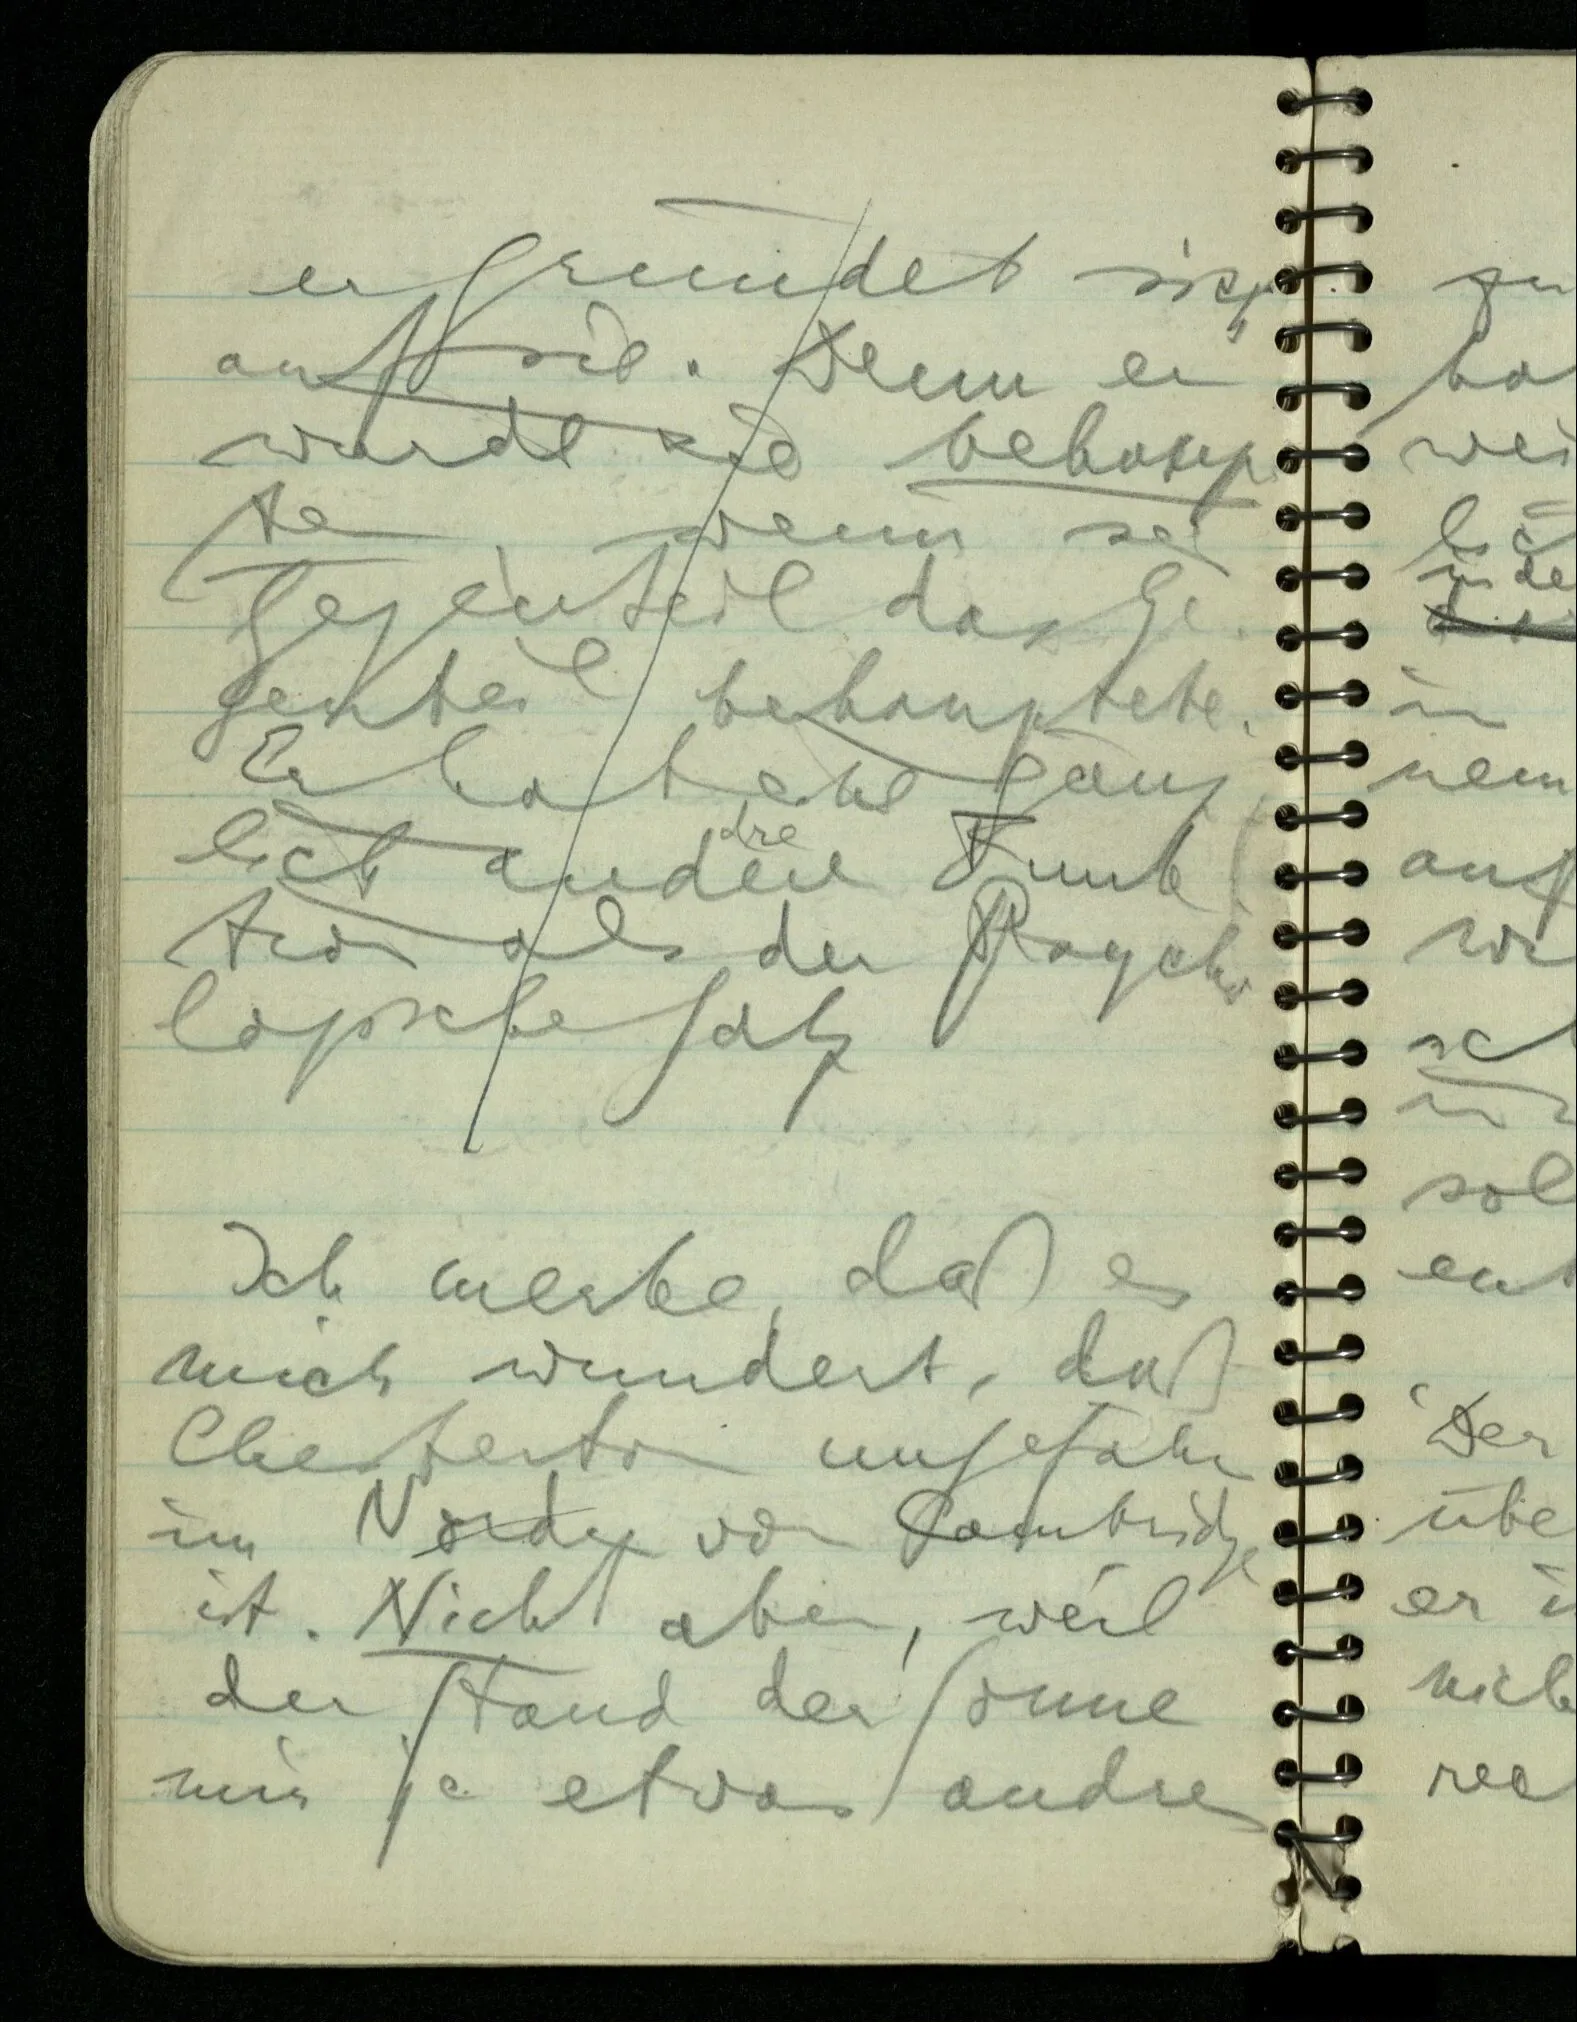 er gründet sich
auf sie. Denn er
würde sie behaup¬
ten, wenn sei
Gegenteil das Ge¬
genteil behauptete.
Er hat eine gänz¬
lich andere Funk¬
dre
tion als der Psycho
logische Satz
Ich merke, daß es
mich wundert, daß
Chesterton ungefähr
im Norden von Cambridge
ist. Nicht aber, weil
der Stand der Sonne
mir je etwas andres
zu
ha
wei
lic
in
nem
auf
wi
sch
sol
ent
Der
übe
er i
nich
rec